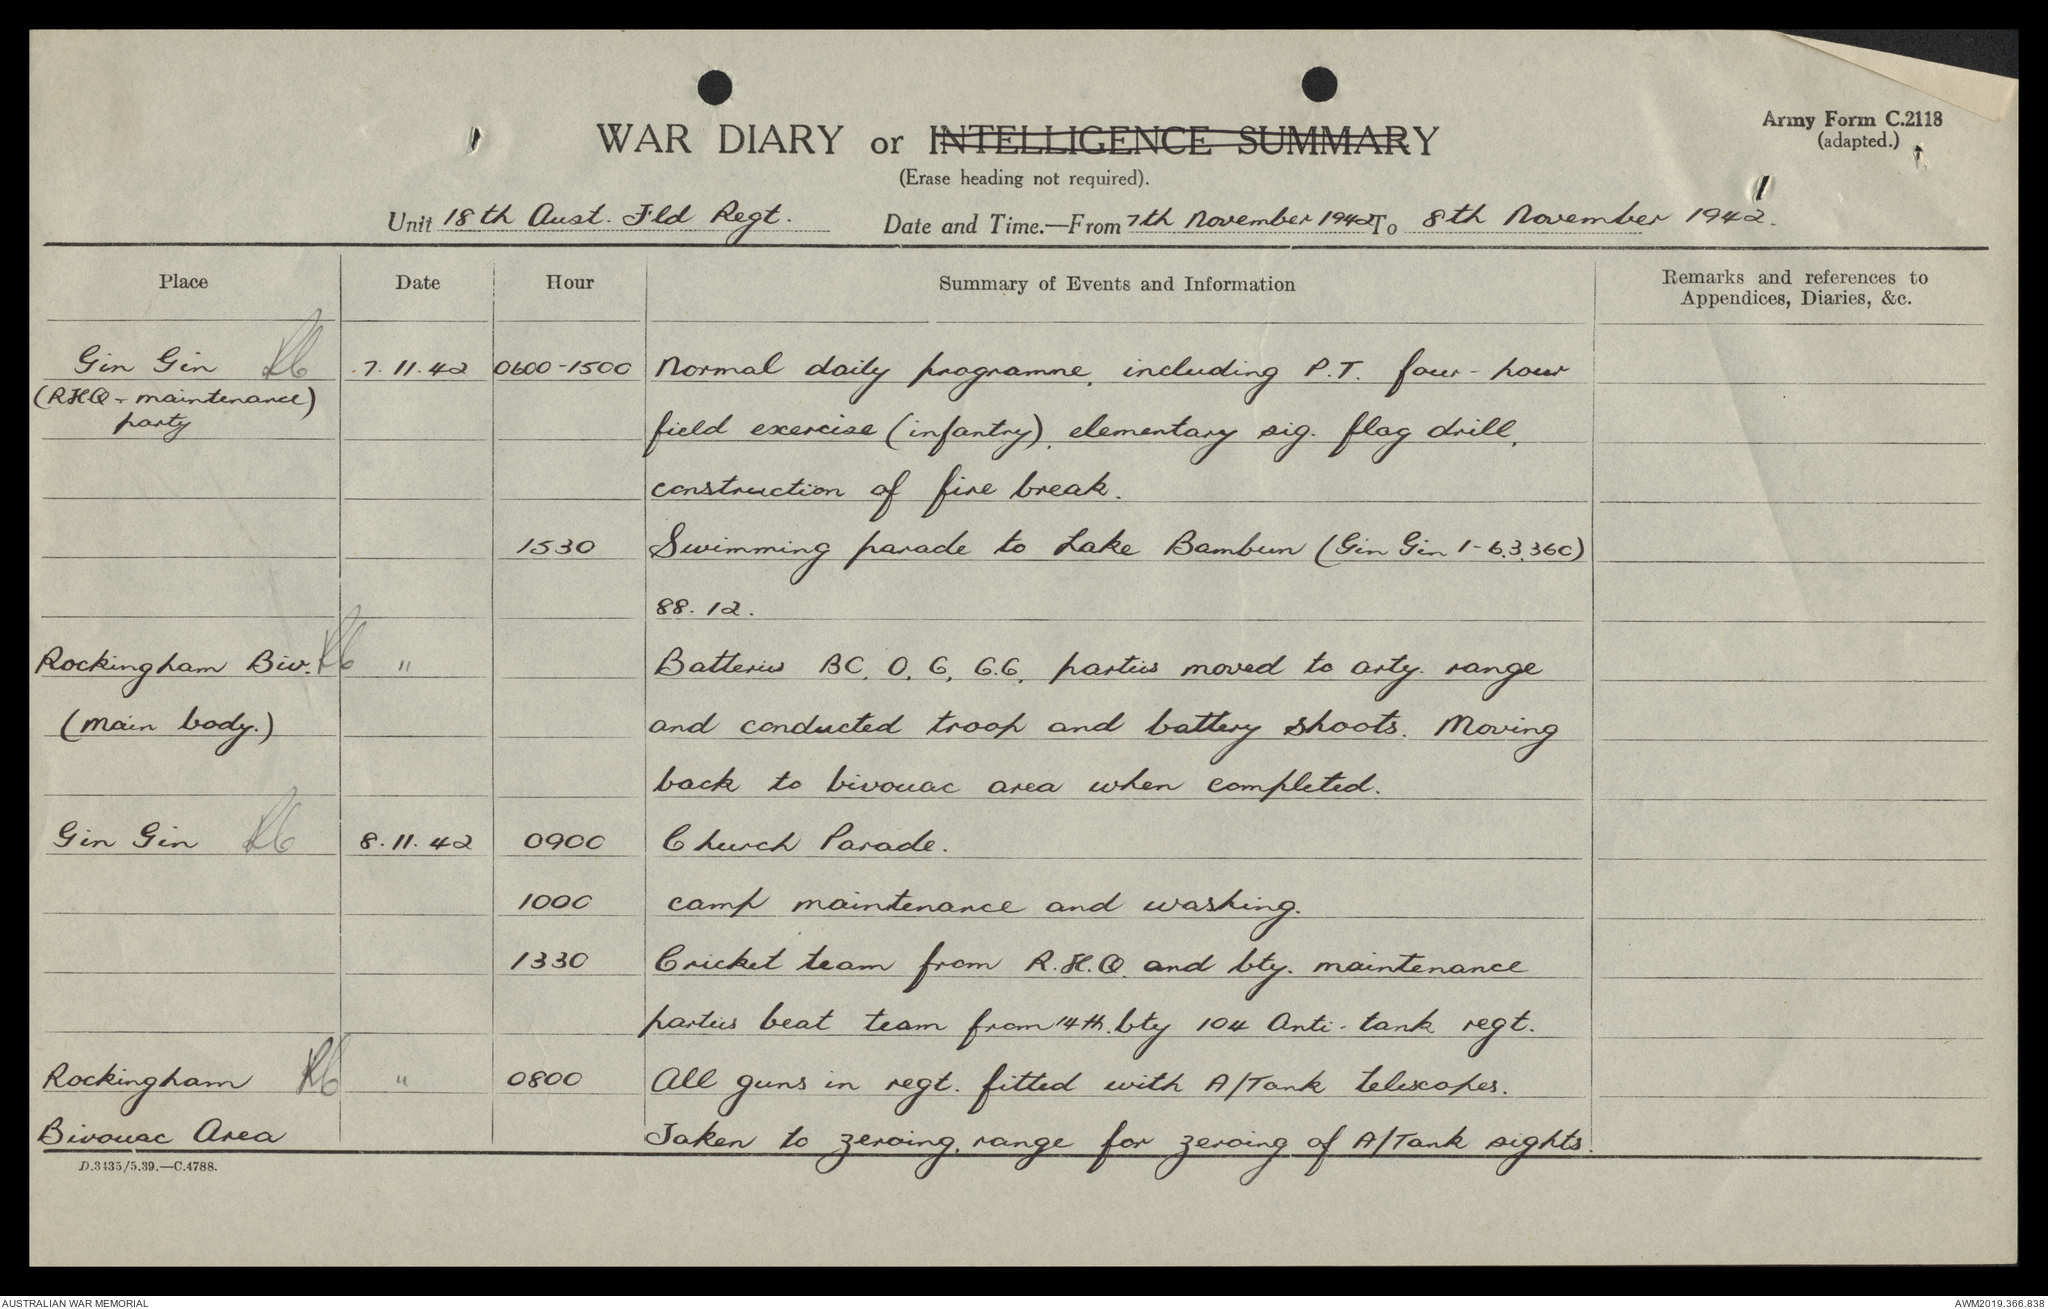 WAR DIARY or INTELLIGENCE SUMMARY
(Erase heading not required).
Army Form C.2118
(adapted.)
Unit 18th Aust. Fld Regt. Date and Time.—From 7th November 1942 To 8th November 1942.
Place Date Hour Summary of Events and Information Remarks and references to
Appendices, Diaries, &c.
Gin Gin 7.11.42 0600-1500 Normal daily programme, including P.T. four-hour
(RHQ - maintenance)
party
field exercise (infantry), elementary sig. flag drill,
construction of fire break.
1530 Swimming parade to Lake Bambun (Gin Gin 1-63360)
88.12.
Rockingham Biv. " Batteries BC, O, G, GG, parties moved to arty. range
(main body.) and conducted troop and battery shoots. Moving
back to bivouac area when completed.
Gin Gin 8.11.42 0900 Church Parade.
1000 camp maintenance and washing.
1330 Cricket team from R.H.Q. and bty. maintenance
parties beat team from 14th. bty 104 Anti-tank regt.
Rockingham " 0800 All guns in regt. fitted with A/Tank telescopes.
Bivouac Area Taken to zeroing range for zeroing of A/Tank sights.
D.3435/5.39.—C.4788.
AUSTRALIAN WAR MEMORIAL AWM2019.366.838